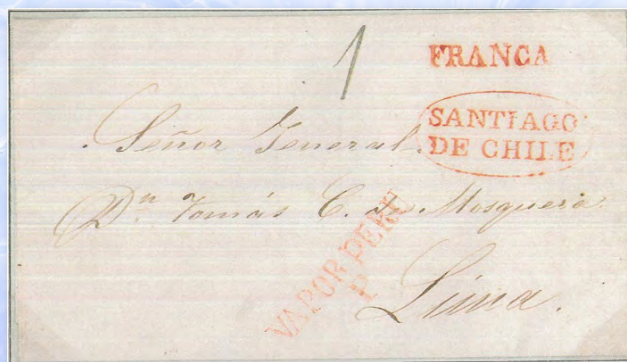 1
FRANCA
SANTIAGO
DE CHILE
Señor General
Dn. Tomás C. de Mosquera
VAPOR PERU
P
Lima.